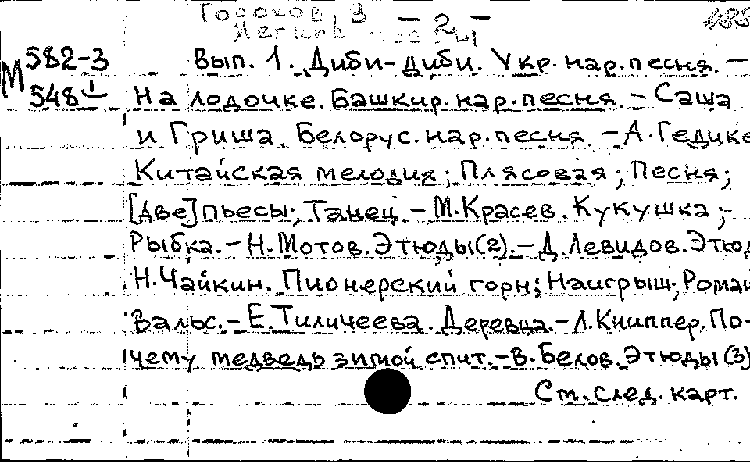 Горохов, В
— 2 —
М 582-3 Вып. 1. Диби-диби. Укр. нар. песня. —
548 1 На лодочке. Башкир. нар. песня. — Саша
и Гриша. Белорус. нар. песня. — А. Гедике
Китайская мелодия; Плясовая; Песня;
[Две] пьесы; Танец. — М. Красев. Кукушка;
Рыбка. — Н. Мотов. Этюды (2). — Д. Левидов. Этюд
Н. Чайкин. Пионерский горн; Наигрыш; Роман
Вальс. — Е. Тиличеева. Деревца. — Л. Книппер. По-
чему медведь зимой спит. — В. Белов. Этюды (3)
См. след. карт.